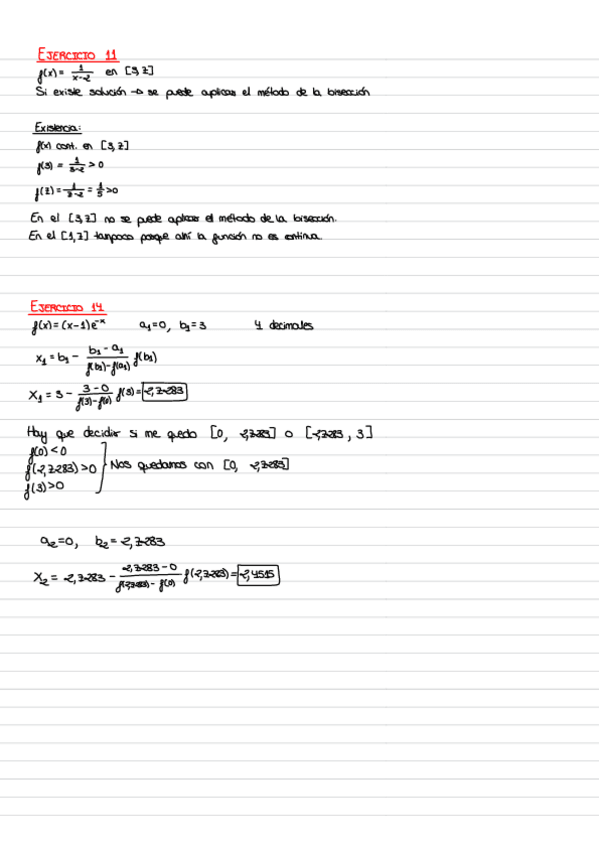 EJERCICIO 11
f(x) = 1/(x-2) en [3,7]
Si existe solución → se puede aplicar el método de la bisección
Existencia:
f(x) cont. en [3,7]
f(3) = 1/(3-2) > 0
f(7) = 1/(7-2) = 1/5 > 0
En el [3,7] no se puede aplicar el método de la bisección.
En el [1,7] tampoco porque ahí la función no es continua.
EJERCICIO 14
f(x) = (x-1)e^-x a₁=0, b₁=3 4 decimales
x₁ = b₁ - (b₁ - a₁)/(f(b₁)-f(a₁)) f(b₁)
x₁ = 3 - (3-0)/(f(3)-f(0)) f(3) = 2,7283
Hay que decidir si me quedo [0, 2,7283] o [2,7283, 3]
f(0)<0
f(2,7283)>0 } Nos quedamos con [0, 2,7283]
f(3)>0
a₂=0, b₂=2,7283
x₂ = 2,7283 - (2,7283-0)/(f(2,7283)-f(0)) f(2,7283) = 2,4515